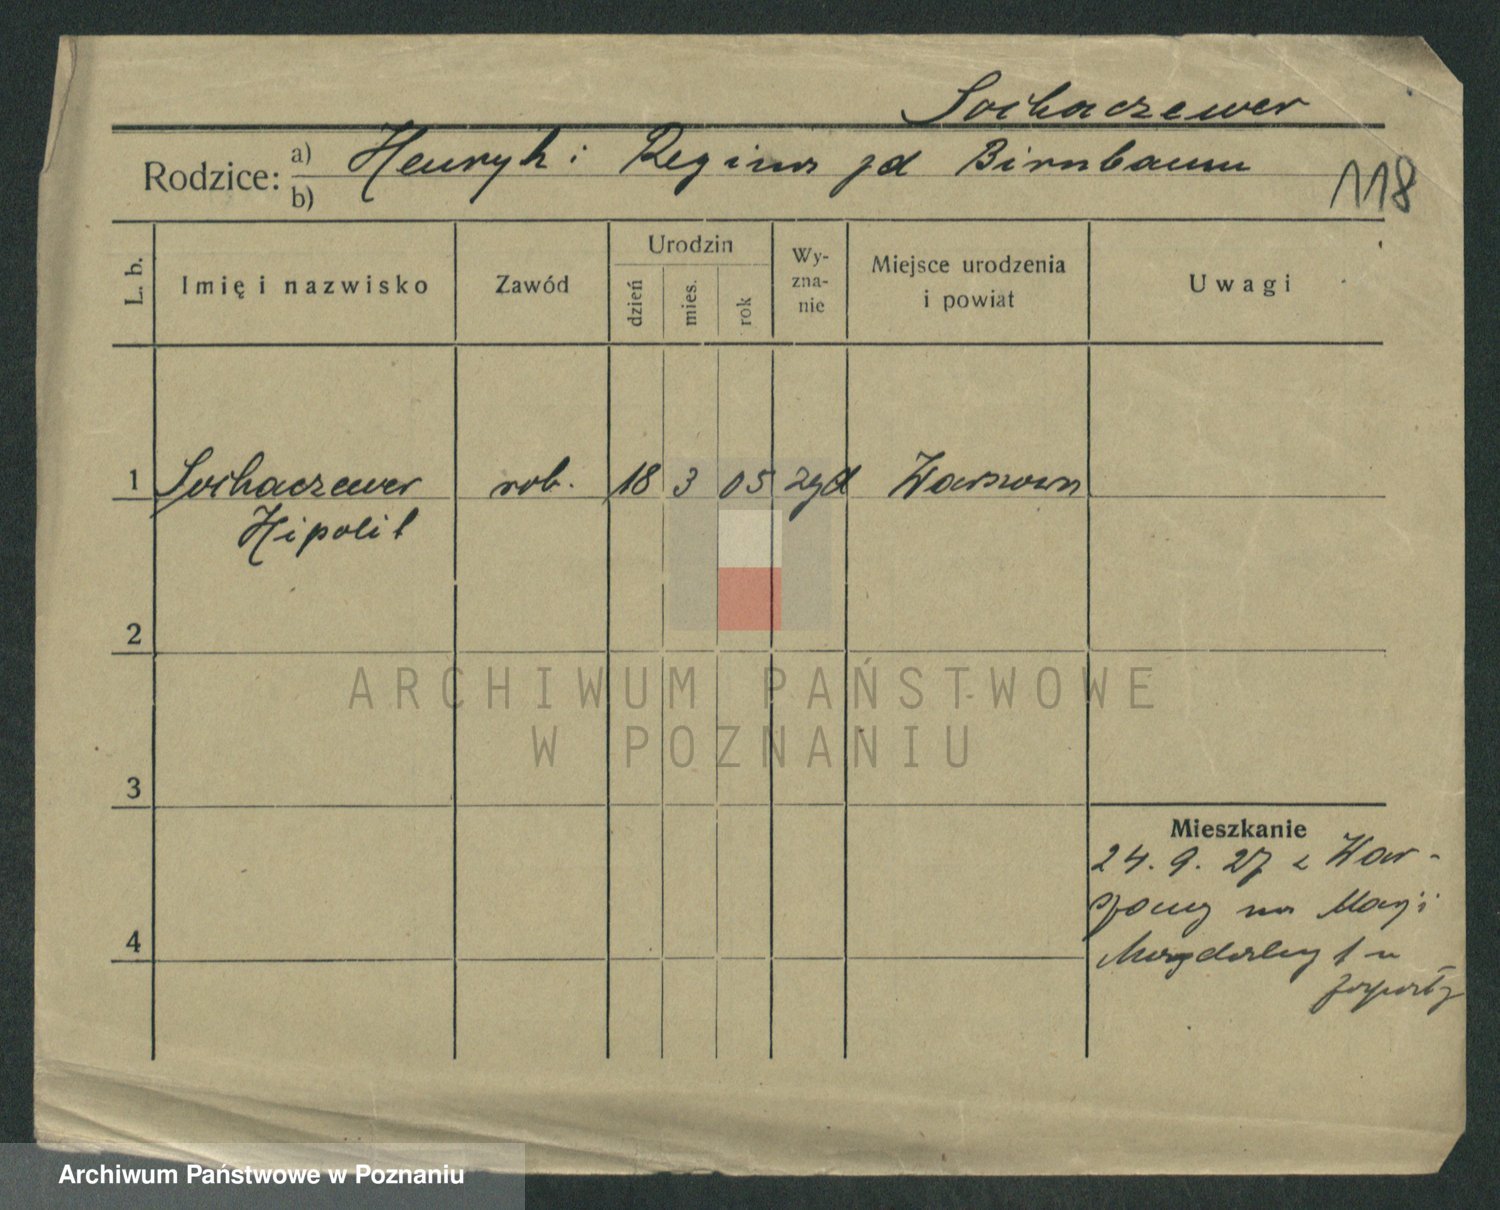 Sochaczewer
Rodzice: a) Henryk i Regina zd Birnbaum
b)
118
L. b.
Imię i nazwisko
Zawód
Urodzin
dzień
mies.
rok
Wy-
zna-
nie
Miejsce urodzenia
i powiat
Uwagi
1 Sochaczewer rob. 18 3 05 żyd Warszawa
Hipolit
2
ARCHIWUM PAŃSTWOWE
W POZNANIU
3
Mieszkanie
24. 9. 27 z War-
szawy na Marji
4
Magdaleny 1 u
Archiwum Państwowe w Poznaniu